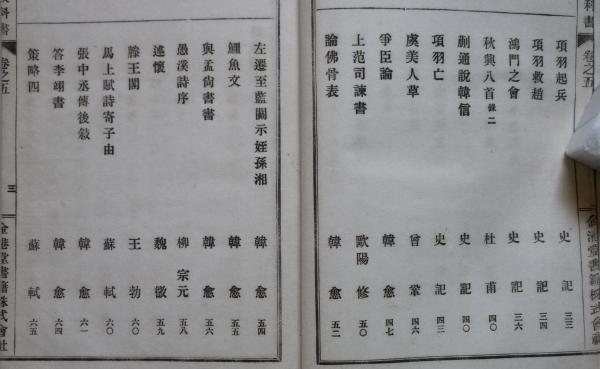 科書 卷之五
項羽起兵 史記 三三
項羽救趙 史記 三四
鴻門之會 史記 三六
秋興八首 錄二 杜甫 四〇
蒯通說韓信 史記 四〇
項羽亡 史記 四三
虞美人草 曾鞏 四六
爭臣論 韓愈 四七
上范司諫書 歐陽修 五〇
論佛骨表 韓愈 五二
左遷至藍關示姪孫湘 韓愈 五四
鱷魚文 韓愈 五五
與孟尙書書 韓愈 五六
愚溪詩序 柳宗元 五八
述懷 魏徵 五九
滕王閣 王勃 六〇
馬上賦詩寄子由 蘇軾 六〇
張中丞傳後敍 韓愈 六一
答李翊書 韓愈 六四
策略四 蘇軾 六五
科書 卷之五 三 金港堂書籍株式會社